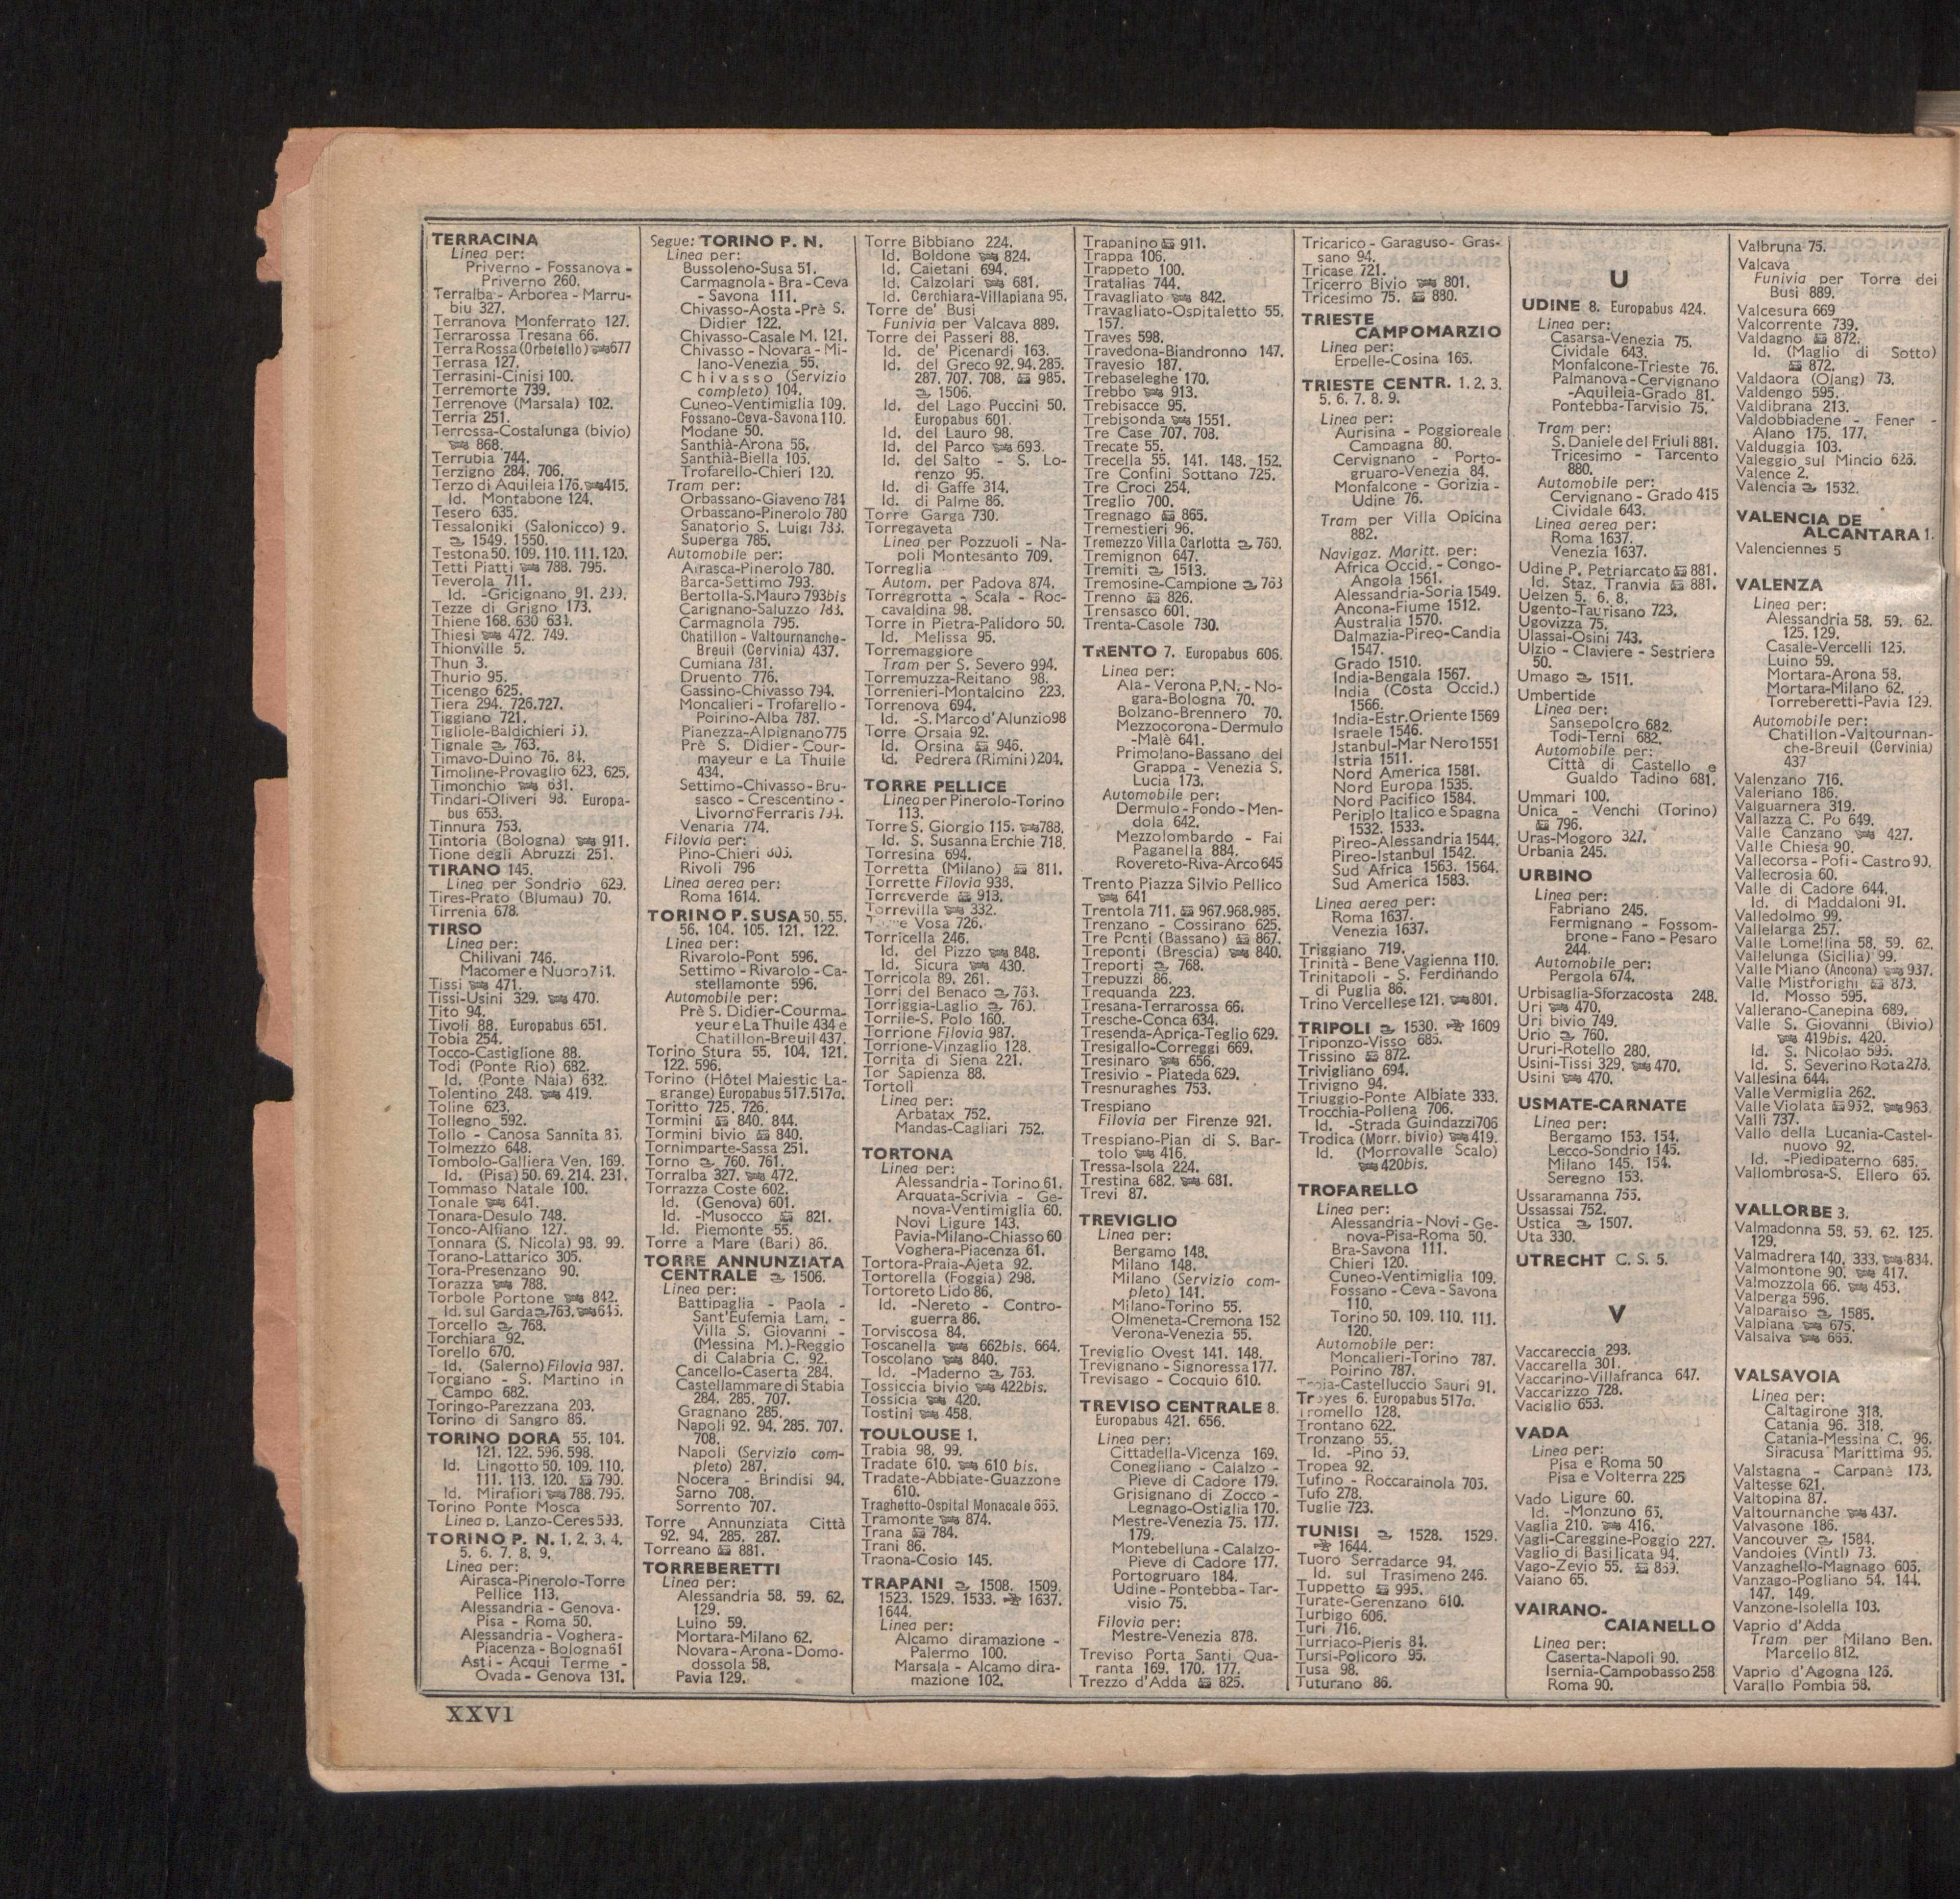 TERRACINA
Linea per:
Priverno - Fossanova -
Priverno 260.
Terralba - Arborea - Marru-
biu 327.
Terranova Monferrato 127.
Terrarossa Tresana 66.
Terra Rossa (Orbetello) 677
Terrasa 127.
Terrasini-Cinisi 100.
Terremorte 739.
Terrenove (Marsala) 102.
Terria 251.
Terrossa-Costalunga (bivio)
868.
Terrubia 744.
Terzigno 284. 706.
Terzo di Aquileia 176. 415.
Id. Montabone 124.
Tesero 635.
Tessaloniki (Salonicco) 9.
1549. 1550.
Testona 50. 109. 110. 111. 120.
Tetti Piatti 788. 795.
Teverola 711.
Id. -Gricignano 91. 239.
Tezze di Grigno 173.
Thiene 168. 630 631.
Thiesi 472. 749.
Thionville 5.
Thun 3.
Thurio 95.
Ticengo 625.
Tiera 294. 726.727.
Tiggiano 721.
Tigliole-Baldichieri
Tignale 763.
Timavo-Duino 76. 84.
Timoline-Provaglio 623. 625.
Timonchio 631.
Tindari-Oliveri 98. Europa-
bus 653.
Tinnura 753.
Tintoria (Bologna) 911.
Tione degli Abruzzi 251.
TIRANO 145.
Linea per Sondrio 629.
Tires-Prato (Blumau) 70.
Tirrenia 678.
TIRSO
Linea per:
Chilivani 746.
Macomer e Nuoro 751.
Tissi 471.
Tissi-Usini 329. 470.
Tito 94.
Tivoli 88. Europabus 651.
Tobia 254.
Tocco-Castiglione 88.
Todi (Ponte Rio) 682.
Id. (Ponte Naia) 632.
Tolentino 248. 419.
Toline 623.
Tollegno 592.
Tollo - Canosa Sannita 85.
Tolmezzo 648.
Tombolo-Galliera Ven. 169.
Id. (Pisa) 50. 69. 214. 231.
Tommaso Natale 100.
Tonale 641.
Tonara-Desulo 748.
Tonco-Alfiano 127.
Tonnara (S. Nicola) 98. 99.
Torano-Lattarico 305.
Tora-Presenzano 90.
Torazza 788.
Torbole Portone 842.
Id. sul Garda 763. 645.
Torcello 768.
Torchiara 92.
Torello 670.
Id. (Salerno) Filovia 987.
Torgiano - S. Martino in
Campo 682.
Toringo-Parezzana 203.
Torino di Sangro 85.
TORINO DORA 55. 104.
121. 122. 596. 598.
Id. Lingotto 50. 109. 110.
111. 113. 120. 790.
Id. Mirafiori 788. 795.
Torino Ponte Mosca
Linea p. Lanzo-Ceres 593.
TORINO P. N. 1. 2. 3. 4.
5. 6. 7. 8. 9.
Linea per:
Airasca-Pinerolo-Torre
Pellice 113.
Alessandria - Genova-
Pisa - Roma 50.
Alessandria - Voghera-
Piacenza - Bologna 61
Asti - Acqui Terme -
Ovada - Genova 131.
Segue: TORINO P. N.
Linea per:
Bussoleno-Susa 51.
Carmagnola - Bra - Ceva
- Savona 111.
Chivasso-Aosta -Prè S.
Didier 122.
Chivasso-Casale M. 121.
Chivasso - Novara - Mi-
lano-Venezia 55.
Chivasso (Servizio
completo) 104.
Cuneo-Ventimiglia 109.
Fossano-Ceva-Savona 110.
Modane 50.
Santhià-Arona 56.
Santhià-Biella 105.
Trofarello-Chieri 120.
Tram per:
Orbassano-Giaveno 784
Orbassano-Pinerolo 780
Sanatorio S. Luigi 783.
Superga 785.
Automobile per:
Airasca-Pinerolo 780.
Barca-Settimo 793.
Bertolla-S.Mauro 793bis
Carignano-Saluzzo 783.
Carmagnola 795.
Chatillon - Valtournanche-
Breuil (Cervinia) 437.
Cumiana 781.
Druento 776.
Gassino-Chivasso 794.
Moncalieri - Trofarello -
Poirino-Alba 787.
Pianezza-Alpignano 775
Prè S. Didier - Cour-
mayeur e La Thuile
434.
Settimo-Chivasso - Bru-
sasco - Crescentino -
Livorno Ferraris 794.
Venaria 774.
Filovia per:
Pino-Chieri 805.
Rivoli 796
Linea aerea per:
Roma 1614.
TORINO P. SUSA 50. 55.
56. 104. 105. 121. 122.
Linea per:
Rivarolo-Pont 596.
Settimo - Rivarolo - Ca-
stellamonte 596.
Automobile per:
Prè S. Didier-Courma-
yeur e La Thuile 434 e
Chatillon-Breuil 437.
Torino Stura 55. 104. 121.
122. 596.
Torino (Hôtel Majestic La-
grange) Europabus 517.517a.
Toritto 725. 726.
Tormini 840. 844.
Tormini bivio 840.
Tornimparte-Sassa 251.
Torno 760. 761.
Torralba 327. 472.
Torrazza Coste 602.
Id. (Genova) 601.
Id. -Musocco 821.
Id. Piemonte 55.
Torre a Mare (Bari) 86.
TORRE ANNUNZIATA
CENTRALE 1506.
Linea per:
Battipaglia - Paola -
Sant'Eufemia Lam. -
Villa S. Giovanni -
(Messina M.)-Reggio
di Calabria C. 92.
Cancello-Caserta 284.
Castellammare di Stabia
284. 285. 707.
Gragnano 285.
Napoli 92. 94. 285. 707.
708.
Napoli (Servizio com-
pleto) 287.
Nocera - Brindisi 94.
Sarno 708.
Sorrento 707.
Torre Annunziata Città
92. 94. 285. 287.
Torreano 881.
TORREBERETTI
Linea per:
Alessandria 58. 59. 62.
129.
Luino 59.
Mortara-Milano 62.
Novara-Arona-Domo-
dossola 58.
Pavia 129.
Torre Bibbiano 224.
Id. Boldone 824.
Id. Caietani 694.
Id. Calzolari 681.
Id. Cerchiara-Villapiana 95.
Torre de' Busi
Funivia per Valcava 889.
Torre dei Passeri 88.
Id. de' Picenardi 163.
Id. del Greco 92. 94. 285.
287. 707. 708. 985.
1506.
Id. del Lago Puccini 50.
Europabus 601.
Id. del Lauro 98.
Id. del Parco 693.
Id. del Salto - S. Lo-
renzo 95.
Id. di Gaffe 314.
Id. di Palme 86.
Torre Garga 730.
Torregaveta
Linea per Pozzuoli - Na-
poli Montesanto 709.
Torreglia
Autom. per Padova 874.
Torregrotta - Scala - Roc-
cavaldina 98.
Torre in Pietra-Palidoro 50.
Id. Melissa 95.
Torremaggiore
Tram per S. Severo 994.
Torremuzza-Reitano 98.
Torrenieri-Montalcino 223.
Torrenova 694.
Id. -S. Marco d'Alunzio 98
Torre Orsaia 92.
Id. Orsina 946.
Id. Pedrera (Rimini) 204.
TORRE PELLICE
Linea per Pinerolo-Torino
113.
Torre S. Giorgio 115. 788.
Id. S. Susanna Erchie 718.
Torresina 694.
Torretta (Milano) 811.
Torrette Filovia 938.
Torreverde 913.
Torrevilla 332.
Vosa 726.
Torricella 246.
Id. del Pizzo 848.
Id. Sicura 430.
Torricola 89. 261.
Torri del Benaco 763.
Torriggia-Laglio 760.
Torrile-S. Polo 160.
Torrione Filovia 987.
Torrione-Vinzaglio 128.
Torrita di Siena 221.
Tor Sapienza 88.
Tortolì
Linea per:
Arbatax 752.
Mandas-Cagliari 752.
TORTONA
Linea per:
Alessandria - Torino 61.
Arquata-Scrivia - Ge-
nova-Ventimiglia 60.
Novi Ligure 143.
Pavia-Milano-Chiasso 60
Voghera-Piacenza 61.
Tortora-Praia-Ajeta 92.
Tortorella (Foggia) 298.
Tortoreto Lido 86.
Id. -Nereto - Contro-
guerra 86.
Torviscosa 84.
Toscanella 662bis. 664.
Toscolano 840.
Id. -Maderno 763.
Tossiccia bivio 422bis.
Tossicia 420.
Tostini 458.
TOULOUSE 1.
Trabia 98. 99.
Tradate 610. 610 bis.
Tradate-Abbiate-Guazzone
610.
Traghetto-Ospital Monacale 665.
Tramonte 874.
Trana 784.
Trani 86.
Traona-Cosio 145.
TRAPANI 1508. 1509.
1523. 1529. 1533. 1637.
1644.
Linea per:
Alcamo diramazione -
Palermo 100.
Marsala - Alcamo dira-
mazione 102.
Trapanino 911.
Trappa 106.
Trappeto 100.
Tratalias 744.
Travagliato 842.
Travagliato-Ospitaletto 55.
157.
Traves 598.
Travedona-Biandronno 147.
Travesio 187.
Trebaseleghe 170.
Trebbo 913.
Trebisacce 95.
Trebisonda 1551.
Tre Case 707. 708.
Trecate 55.
Trecella 55. 141. 148. 152.
Tre Confini Sottano 725.
Tre Croci 254.
Treglio 700.
Tregnago 865.
Tremestieri 96.
Tremezzo Villa Carlotta 760.
Tremignon 647.
Tremiti 1513.
Tremosine-Campione 763
Trenno 826.
Trensasco 601.
Trenta-Casole 730.
TRENTO 7. Europabus 606.
Linea per:
Ala - Verona P.N. - No-
gara-Bologna 70.
Bolzano-Brennero 70.
Mezzocorona-Dermulo
-Malè 641.
Primolano-Bassano del
Grappa - Venezia S.
Lucia 173.
Automobile per:
Dermulo - Fondo - Men-
dola 642.
Mezzolombardo - Fai
Paganella 884.
Rovereto-Riva-Arco 645
Trento Piazza Silvio Pellico
641
Trentola 711. 967.968.985.
Trenzano - Cossirano 625.
Tre Ponti (Bassano) 867.
Treponti (Brescia) 840.
Treporti 768.
Trepuzzi 86.
Trequanda 223.
Tresana-Terrarossa 66.
Tresche-Conca 634.
Tresenda-Aprica-Teglio 629.
Tresigallo-Correggi 669.
Tresinaro 656.
Tresivio - Piateda 629.
Tresnuraghes 753.
Trespiano
Filovia per Firenze 921.
Trespiano-Pian di S. Bar-
tolo 416.
Tressa-Isola 224.
Trestina 682. 681.
Trevi 87.
TREVIGLIO
Linea per:
Bergamo 148.
Milano 148.
Milano (Servizio com-
pleto) 141.
Milano-Torino 55.
Olmeneta-Cremona 152
Verona-Venezia 55.
Treviglio Ovest 141. 148.
Trevignano - Signoressa 177.
Trevisago - Cocquio 610.
TREVISO CENTRALE 8.
Europabus 421. 656.
Linea per:
Cittadella-Vicenza 169.
Conegliano - Calalzo -
Pieve di Cadore 179.
Grisignano di Zocco -
Legnago-Ostiglia 170.
Mestre-Venezia 75. 177.
179.
Montebelluna - Calalzo-
Pieve di Cadore 177.
Portogruaro 184.
Udine - Pontebba - Tar-
visio 75.
Filovia per:
Mestre-Venezia 878.
Treviso Porta Santi Qua-
ranta 169. 170. 177.
Trezzo d'Adda 825.
Tricarico - Garaguso - Gras-
sano 94.
Tricase 721.
Tricerro Bivio 801.
Tricesimo 75. 880.
TRIESTE
CAMPOMARZIO
Linea per:
Erpelle-Cosina 165.
TRIESTE CENTR. 1. 2. 3.
5. 6. 7. 8. 9.
Linea per:
Aurisina - Poggioreale
Campagna 80.
Cervignano - Porto-
gruaro-Venezia 84.
Monfalcone - Gorizia -
Udine 76.
Tram per Villa Opicina
882.
Navigaz. Maritt. per:
Africa Occid. - Congo-
Angola 1561.
Alessandria-Soria 1549.
Ancona-Fiume 1512.
Australia 1570.
Dalmazia-Pireo-Candia
1547.
Grado 1510.
India-Bengala 1567.
India (Costa Occid.)
1566.
India-Estr.Oriente 1569
Israele 1546.
Istanbul-Mar Nero 1551
Istria 1511.
Nord America 1581.
Nord Europa 1535.
Nord Pacifico 1584.
Periplo Italico e Spagna
1532. 1533.
Pireo-Alessandria 1544.
Pireo-Istanbul 1542.
Sud Africa 1563. 1564.
Sud America 1583.
Linea aerea per:
Roma 1637.
Venezia 1637.
Triggiano 719.
Trinità - Bene Vagienna 110.
Trinitapoli - S. Ferdinando
di Puglia 86.
Trino Vercellese 121. 801.
TRIPOLI 1530. 1609
Triponzo-Visso 685.
Trissino 872.
Trivigliano 694.
Trivigno 94.
Triuggio-Ponte Albiate 333.
Trocchia-Pollena 706.
Id. -Strada Guindazzi 706
Trodica (Morr. bivio) 419.
Id. (Morrovalle Scalo)
420bis.
TROFARELLO
Linea per:
Alessandria - Novi - Ge-
nova-Pisa-Roma 50.
Bra-Savona 111.
Chieri 120.
Cuneo-Ventimiglia 109.
Fossano - Ceva - Savona
110.
Torino 50. 109. 110. 111.
120.
Automobile per:
Moncalieri-Torino 787.
Poirino 787.
Troia-Castelluccio Sauri 91.
Troyes 6. Europabus 517a.
Tromello 128.
Trontano 622.
Tronzano 55.
Id. -Pino 59.
Tropea 92.
Tufino - Roccarainola 705.
Tufo 278.
Tuglie 723.
TUNISI 1528. 1529.
1644.
Tuoro Serradarce 94.
Id. sul Trasimeno 246.
Tuppetto 995.
Turate-Gerenzano 610.
Turbigo 606.
Turi 716.
Turriaco-Pieris 84.
Tursi-Policoro 95.
Tusa 98.
Tuturano 86.
U
UDINE 8. Europabus 424.
Linea per:
Casarsa-Venezia 75.
Cividale 643.
Monfalcone-Trieste 76.
Palmanova-Cervignano
-Aquileia-Grado 81.
Pontebba-Tarvisio 75.
Tram per:
S. Daniele del Friuli 881.
Tricesimo - Tarcento
880.
Automobile per:
Cervignano - Grado 415
Cividale 643.
Linea aerea per:
Roma 1637.
Venezia 1637.
Udine P. Petriarcato 881.
Id. Staz. Tranvia 881.
Uelzen 5. 6. 8.
Ugento-Taurisano 723.
Ugovizza 75.
Ulassai-Osini 743.
Ulzio - Claviere - Sestriere
50.
Umago 1511.
Umbertide
Linea per:
Sansepolcro 682.
Todi-Terni 682.
Automobile per:
Città di Castello e
Gualdo Tadino 681.
Ummari 100.
Unica - Venchi (Torino)
796.
Uras-Mogoro 327.
Urbania 245.
URBINO
Linea per:
Fabriano 245.
Fermignano - Fossom-
brone - Fano - Pesaro
244.
Automobile per:
Pergola 674.
Urbisaglia-Sforzacosta 248.
Uri 470.
Uri bivio 749.
Urio 760.
Ururi-Rotello 280.
Usini-Tissi 329. 470.
Usini 470.
USMATE-CARNATE
Linea per:
Bergamo 153. 154.
Lecco-Sondrio 145.
Milano 145. 154.
Seregno 153.
Ussaramanna 755.
Ussassai 752.
Ustica 1507.
Uta 330.
UTRECHT C. S. 5.
V
Vaccareccia 293.
Vaccarella 301.
Vaccarino-Villafranca 647.
Vaccarizzo 728.
Vaciglio 653.
VADA
Linea per:
Pisa e Roma 50
Pisa e Volterra 225
Vado Ligure 60.
Id. -Monzuno 65.
Vaglia 210. 416.
Vagli-Careggine-Poggio 227.
Vaglio di Basilicata 94.
Vago-Zevio 55. 859.
Vaiano 65.
VAIRANO-
CAIANELLO
Linea per:
Caserta-Napoli 90.
Isernia-Campobasso 258
Roma 90.
Valbruna 75.
Valcava
Funivia per Torre dei
Busi 889.
Valcesura 669
Valcorrente 739.
Valdagno 872.
Id. (Maglio di Sotto)
872.
Valdaora (Olang) 73.
Valdengo 595.
Valdibrana 213.
Valdobbiadene - Fener -
Alano 175. 177.
Valduggia 103.
Valeggio sul Mincio 626.
Valence 2.
Valencia 1532.
VALENCIA DE
ALCANTARA 1.
Valenciennes 5
VALENZA
Linea per:
Alessandria 58. 59. 62.
125. 129.
Casale-Vercelli 125.
Luino 59.
Mortara-Arona 58.
Mortara-Milano 62.
Torreberetti-Pavia 129.
Automobile per:
Chatillon-Valtournan-
che-Breuil (Cervinia)
437
Valenzano 716.
Valeriano 186.
Valguarnera 319.
Vallazza C. Po 649.
Valle Canzano 427.
Valle Chiesa 90.
Vallecorsa - Pofi - Castro 90.
Vallecrosia 60.
Valle di Cadore 644.
Id. di Maddaloni 91.
Valledolmo 99.
Vallelarga 257.
Valle Lomellina 58. 59. 62.
Vallelunga (Sicilia) 99.
Valle Miano (Ancona) 937.
Valle Mistrorighi 873.
Id. Mosso 595.
Vallerano-Canepina 689.
Valle S. Giovanni (Bivio)
419bis. 420.
Id. S. Nicolao 595.
Id. S. Severino Rota 278.
Vallesina 644.
Valle Vermiglia 262.
Valle Violata 952. 963.
Valli 737.
Vallo della Lucania-Castel-
nuovo 92.
Id. -Piedipaterno 685.
Vallombrosa-S. Ellero 65.
VALLORBE 3.
Valmadonna 58. 59. 62. 125.
129.
Valmadrera 140. 333. 834.
Valmontone 90. 417.
Valmozzola 66. 453.
Valperga 596.
Valparaiso 1585.
Valpiana 675.
Valsalva 665.
VALSAVOIA
Linea per:
Caltagirone 318.
Catania 96. 318.
Catania-Messina C. 96.
Siracusa Marittima 95.
Valstagna - Carpanè 173.
Valtesse 621.
Valtopina 87.
Valtournanche 437.
Valvasone 186.
Vancouver 1584.
Vandoies (Vintl) 73.
Vanzaghello-Magnago 605.
Vanzago-Pogliano 54. 144.
147. 149.
Vanzone-Isolella 103.
Vaprio d'Adda
Tram per Milano Ben.
Marcello 812.
Vaprio d'Agogna 126.
Varallo Pombia 58.
XXVI